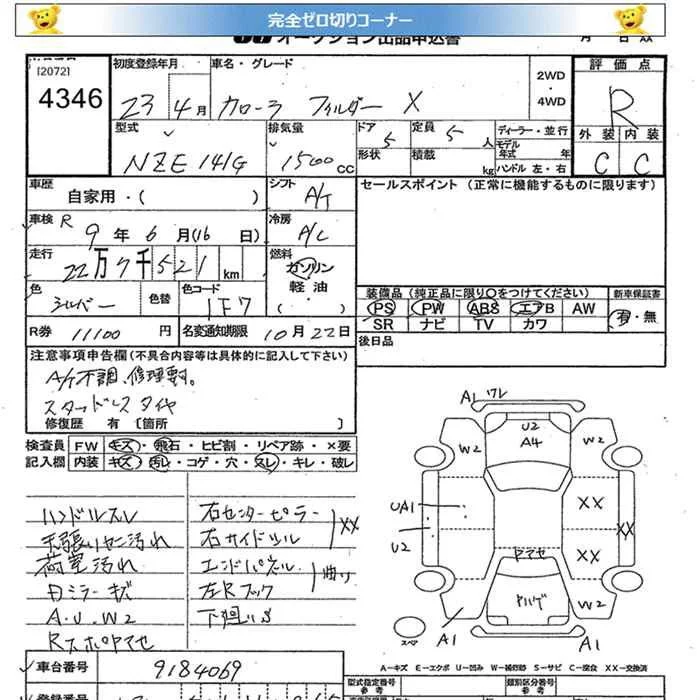 完全ゼロ切りコーナー
オークション出品申込書
月 日
[2072]
4346
初度登録年月
23 4月
車名・グレード
カローラ フィルダー X
2WD
・
4WD
評価点
R
外装 内装
C C
型式
NZE141G
排気量
1500 CC
ドア 5
定員 5 人
形状
積載 kg
ディーラー・並行
モデル年式 年
ハンドル 左・右
車歴
自家用・( )
シフト
A/T
セールスポイント (正常に機能するものに限ります)
車検 R
9年6月(16日)
冷房
A/C
走行
22万7千521km
燃料
ガソリン
軽油
・( )
色
シルバー
色替
色コード
1F7
装備品(純正品に限り○をつけてください)
PS PW ABS エアB AW
SR ナビ TV カワ
新車保証書
有・無
R券 11100 円
名変通知期限 10月22日
後日品
注意事項申告欄(不具合内容等は具体的に記入して下さい)
A/T不調、修理要。
スタッドレスタイヤ
修復歴 有 [箇所 ]
検査員 FW キズ・飛石・ヒビ割・リペア跡・×要
記入欄 内装 キズ・汚レ・コゲ・穴・スレ・キレ・破レ
ハンドルスレ
天張リセン汚れ
荷室汚れ
Dミラーキズ
A.U.W2
Rスポヤマセ
右センターピラー
右サイドシル
XX
エンドパネル
左Rフック
曲り
下廻りS
A1 ワレ
U2
A4
W2
W2
UA1
U2
XX
XX
XX
ヤマセ
W2
A1
A1
スペア
A-キズ E-エクボ U-凹み W-補修跡 S-サビ C-腐食 XX-交換済
車台番号
9184069
登録番号
型式指定番号
参考
類別区分番号
参考